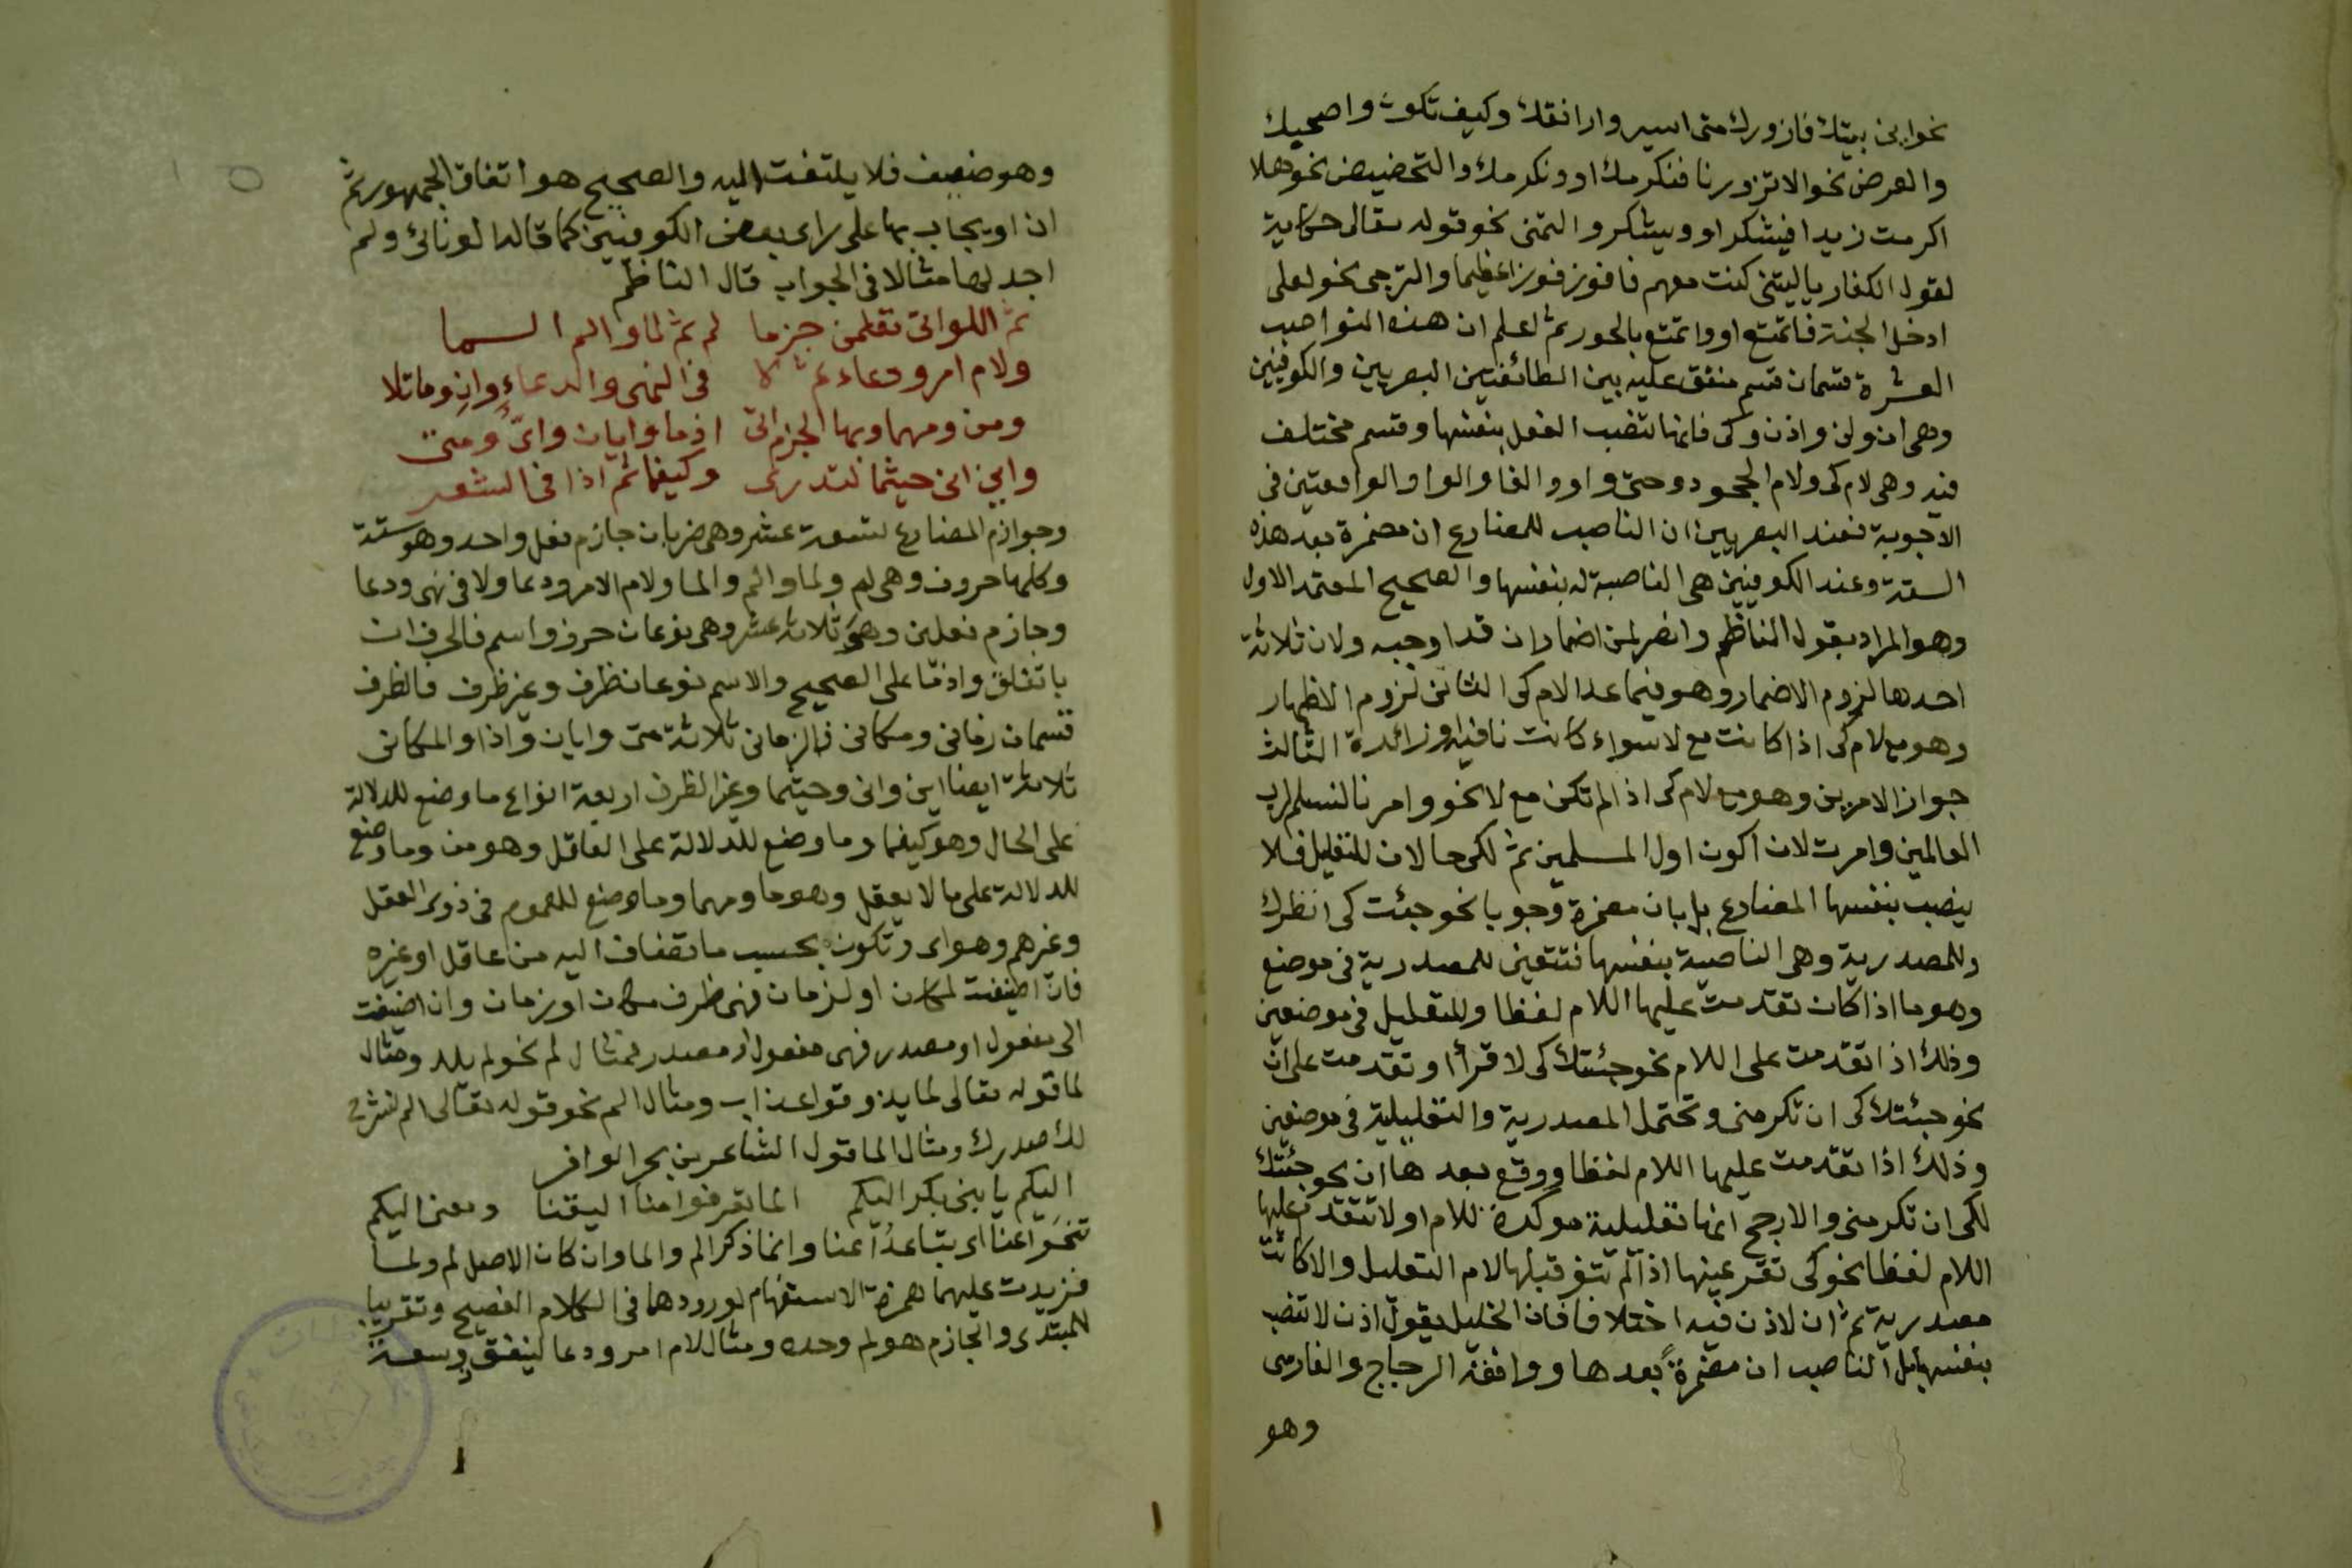 نحو اين بيتك فازورك متى اسير وارافقك وكيف تكون واصحبك
والعرض نحو الا تزورنا فنكرمك او ونكرمك والتحضيض نحو هلا
اكرمت زيدا فيشكر او ويشكر والتمنى نحو قوله تعالى حكاية
لقول الكفار ياليتنى كنت معهم فافوز فوزا عظيما والترجى نحو لعلى
ادخل الجنة فاتمتع او واتمتع بالحور ثم اعلم ان هذه النواصب
العشرة قسمان قسم متفق عليه بين الطائفتين البصريين والكوفيين
وهى ان ولن واذن وكى فانها تنصب الفعل بنفسها وقسم مختلف
فيه وهى لام كى ولام الجحود وحتى واو والفا والواو الواقعتين فى
الاجوبة فعند البصريين ان الناصب للمضارع ان مضمرة بعد هذه
الستة وعند الكوفيين هى الناصبة له بنفسها والصحيح المعتمد الاول
وهو المراد بقول الناظم وانصر لمن اضمار ان قد اوجبه ولان ثلاثة
احدها لزوم الاضمار وهو فيما عدا لام كى الثانى لزوم الاظهار
وهو مع لام كى اذا كانت مع لا سواء كانت نافية او زائدة الثالث
جواز الامرين وهو مع لام كى اذا لم تكن مع لا نحو وامرنا لنسلم لرب
العالمين وامرت لان اكون اول المسلمين ثم لكى حالان للتعليل فلا
ينصب بنفسها المضارع بل بان مضمرة وجوبا نحو جئت كى انظرك
وللمصدرية وهى الناصبة بنفسها فتتعين للمصدرية فى موضع
وهو ما اذا كان تقدمت عليها اللام لفظا وللتعليل فى موضعين
وذلك اذا تقدمت على اللام نحو جئتك كى لا قرأ او تقدمت على ان
نحو جئتك كى ان تكرمنى وتحتمل المصدرية والتعليلية فى موضعين
وذلك اذا تقدمت عليها اللام لفظا ووقع بعدها ان نحو جئتك
لكى ان تكرمنى والارجح انها تعليلية موكدة للام او لا تتقدم عليها
اللام لفظا نحو كى تقر عينها اذا لم تنو قبلها لام التعليل والا كانت
مصدرية ثم ان لاذن فيه اختلافا فان الخليل يقول اذن لا تنصب
بنفسها بل الناصب ان مضمرةً بعدها ووافقه الزجاج والفارسى
وهو
وهو ضعيف فلا يلتفت اليه والصحيح هو اتفاق الجمهور ثم
ان او يجاب بها على راى بعض الكوفيين كما قاله الونائى ولم
اجد لها مثالا فى الجواب قال الناظم
ثم اللواتى تقلمن جزما لم ثم لما والم السما
ولام امر ودعاء ثم لا فى النهى والدعاء وان وما تلا
ومن ومهما وبها الجزم اتى اذما وايان واىّ ومتى
واين انى حيثما لتدرى وكيفما ثم اذا فى الشعر
وجوازم المضارع تسعة عشر وهى ضربان جازم فعل واحد وهو ستة
وكلها حروف وهى لم ولما والم والما ولام الامر ودعا ولا فى نهى ودعا
وجازم فعلين وهو ثلاثة عشر وهى نوعان حرف واسم فالحرف ان
باتفاق واذما على الصحيح والاسم نوعان ظرف وغير ظرف فالظرف
قسمان زمانى ومكانى فالزمانى ثلاثة متى وايان واذا والمكانى
ثلاثة ايضا اين وانى وحيثما وغير الظرف اربعة انواع ما وضع للدلالة
على الحال وهو كيفما وما وضع للدلالة على العاقل وهو من وما وضع
للدلالة على ما لا يعقل وهو ما ومهما وما وضع للعموم فى ذوى العقل
وغيرهم وهو اى وتكون بحسب ما تضاف اليه من عاقل او غيره
فان اضيفت لمكان او لزمان فهى ظرف مكان او زمان وان اضيفت
الى مفعول او مصدر فهى مفعول او مصدر فمثال لم نحو لم يلد ومثال
لما قوله تعالى لما يذوقوا عذاب ومثال الم نحو قوله تعالى الم نشرح
لك صدرك ومثال الما قول الشاعر من بحر الوافر
اليكم يا بنى بكر اليكم الما تعرفوا منا اليقنا ومعنى اليكم
تنحوا عنا اى تباعدوا عنا وانما ذكر الم والما وان كان الاصل لم ولما
فزيدت عليهما همزة الاستفهام لورودهما فى الكلام الفصيح وتقريبا
للمبتدى والجازم هو لم وحده ومثال لام امر ودعا لينفق ذو سعة